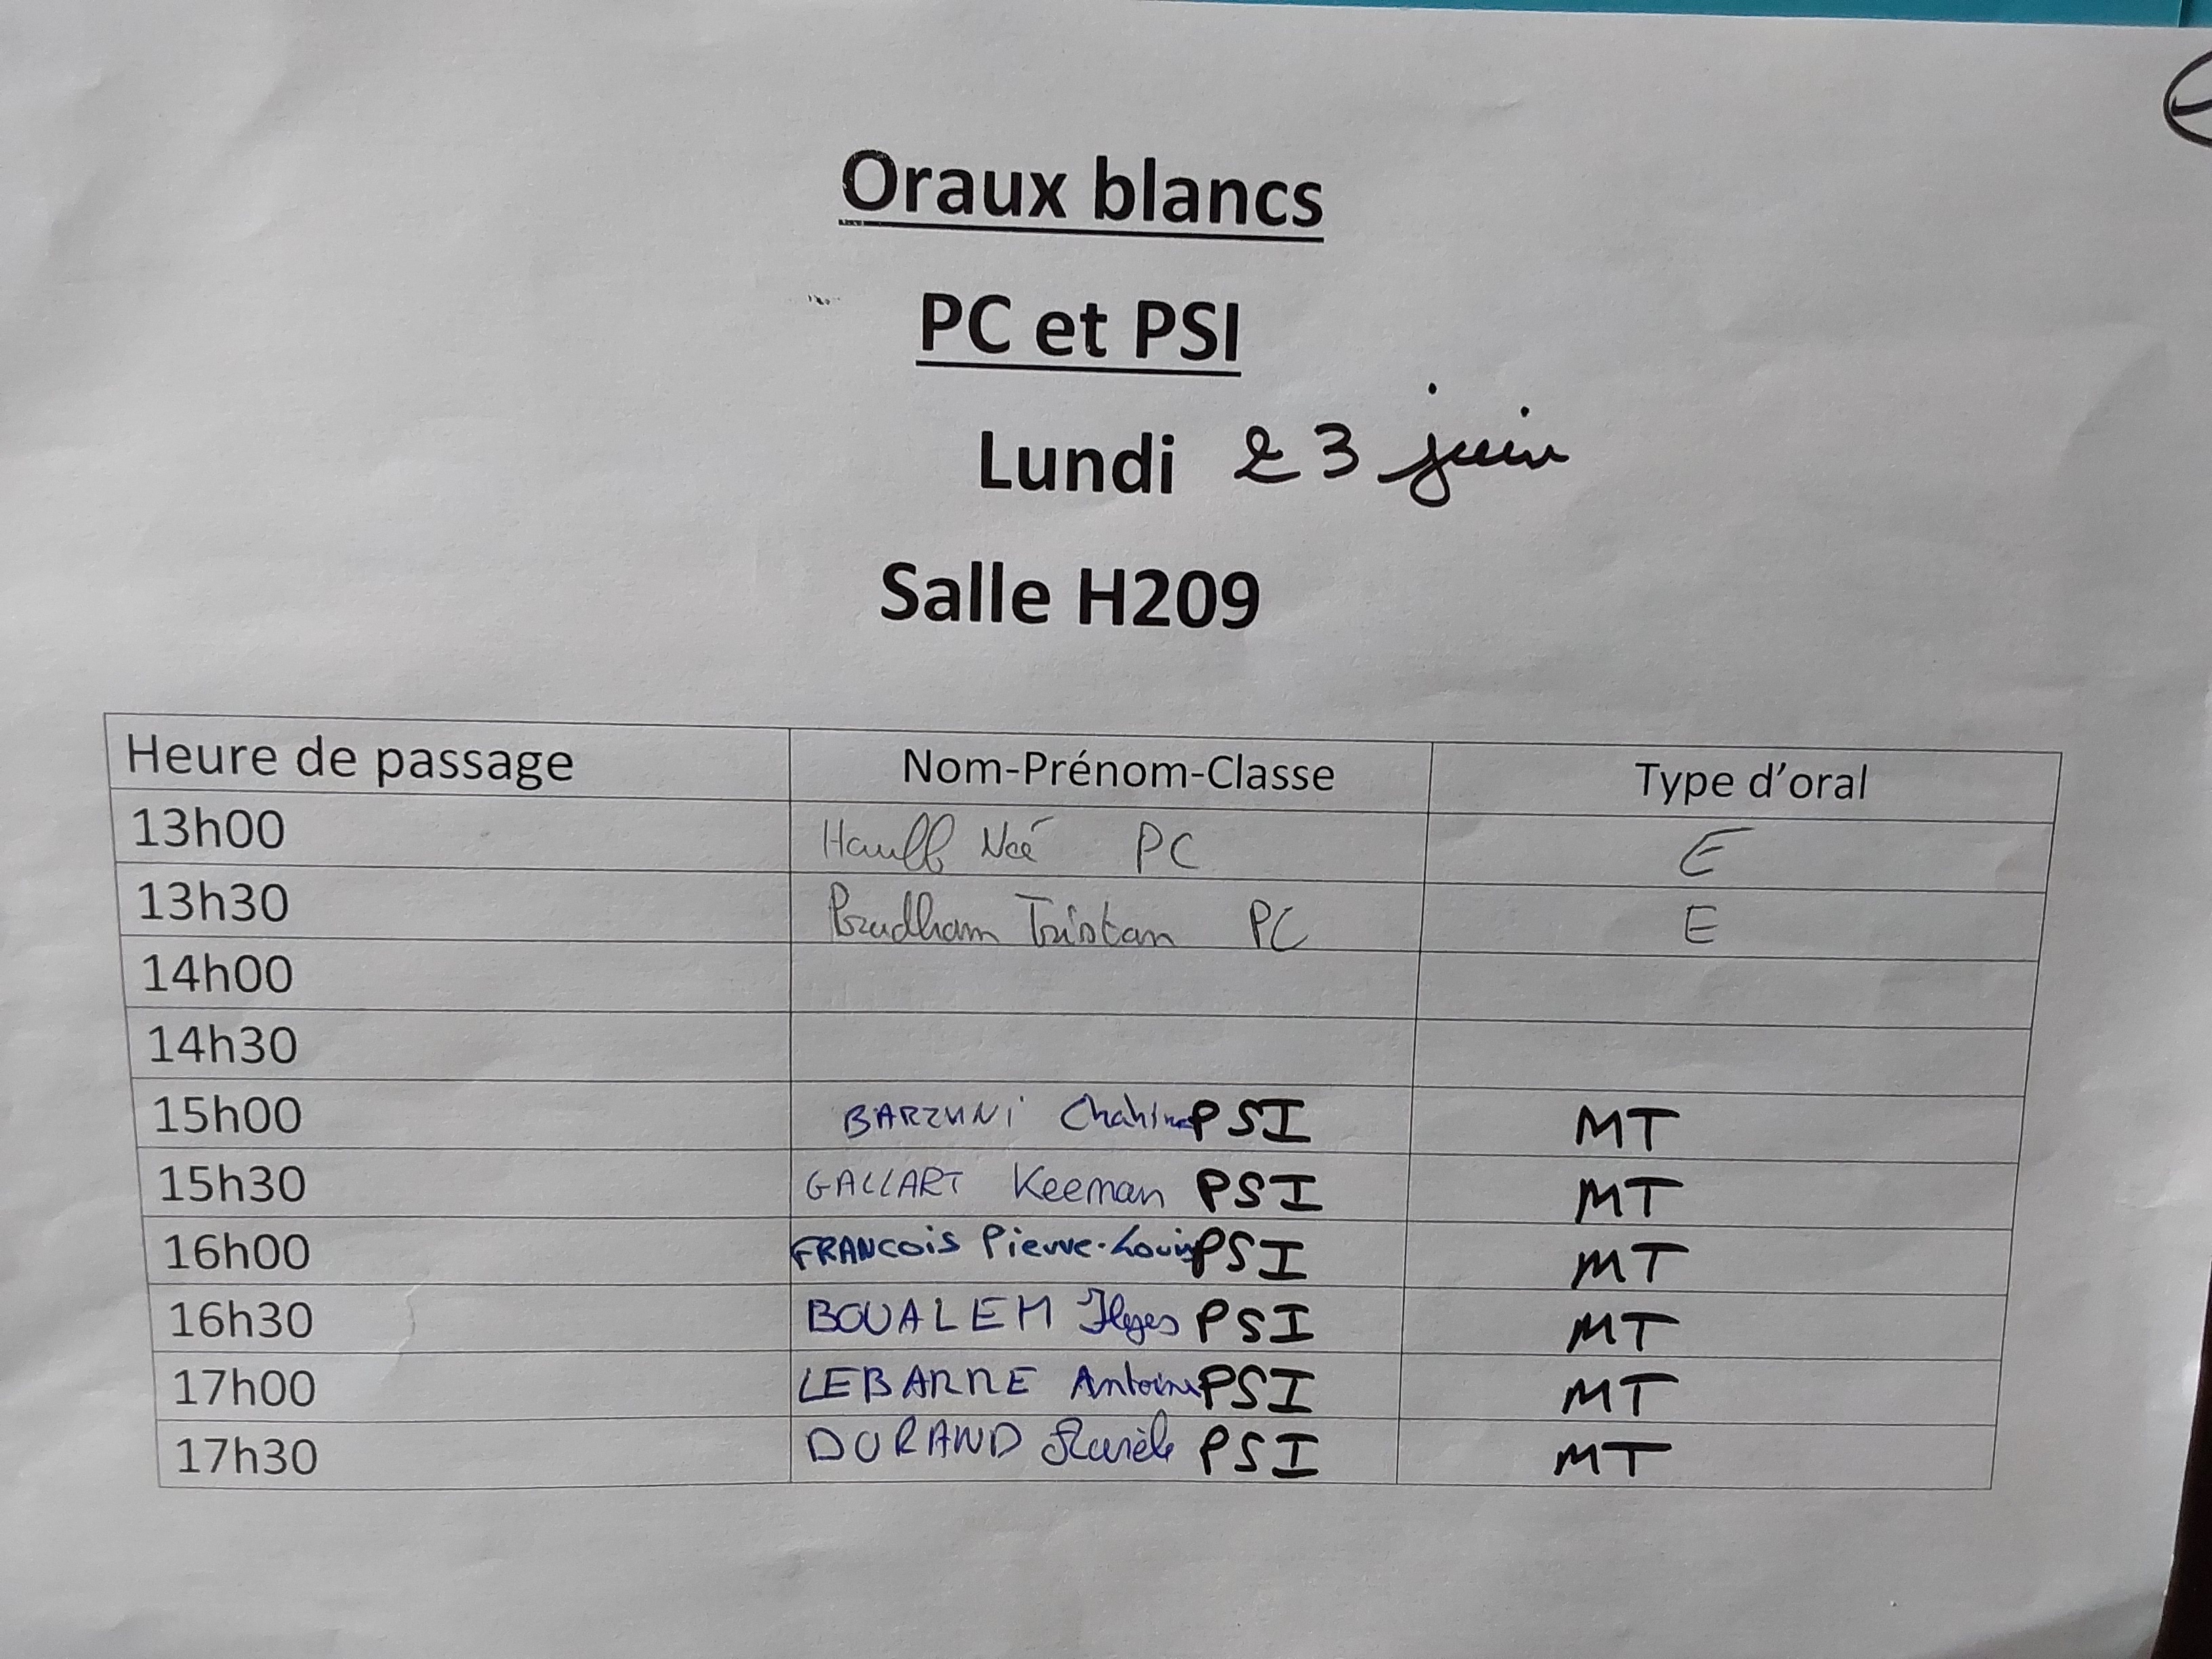 Oraux blancs
PC et PSI
Lundi 23 juin
Salle H209
Heure de passage Nom-Prénom-Classe Type d'oral
13h00 Hauff Noé PC E
13h30 Prudham Tristan PC E
14h00
14h30
15h00 BARZUNI Chahine PSI MT
15h30 GALLART Keeman PSI MT
16h00 FRANCOIS Pierre-Louis PSI MT
16h30 BOUALEM Ilyes PSI MT
17h00 LEBARRE Antoine PSI MT
17h30 DURAND PSI MT